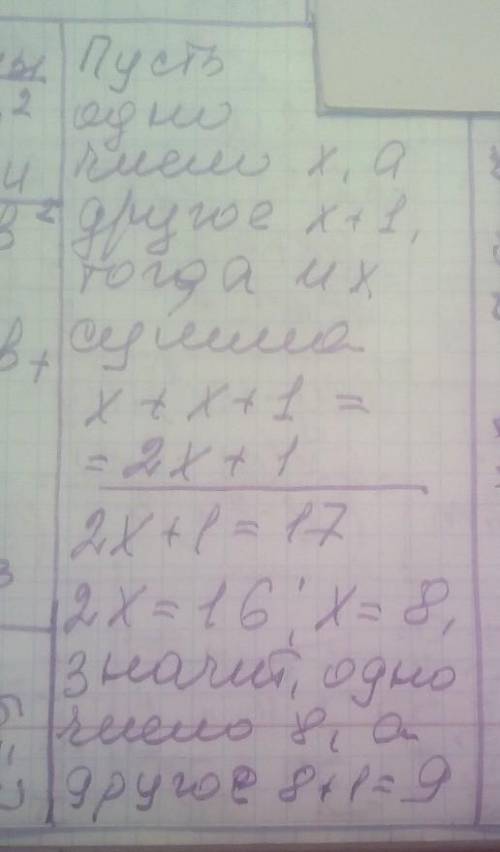 Пусть
одно
число x, а
другое x+1,
тогда их
сумма
x + x + 1 =
= 2x + 1
2x+1 = 17
2x = 16; x = 8,
значит, одно
число 8, а
другое 8+1=9